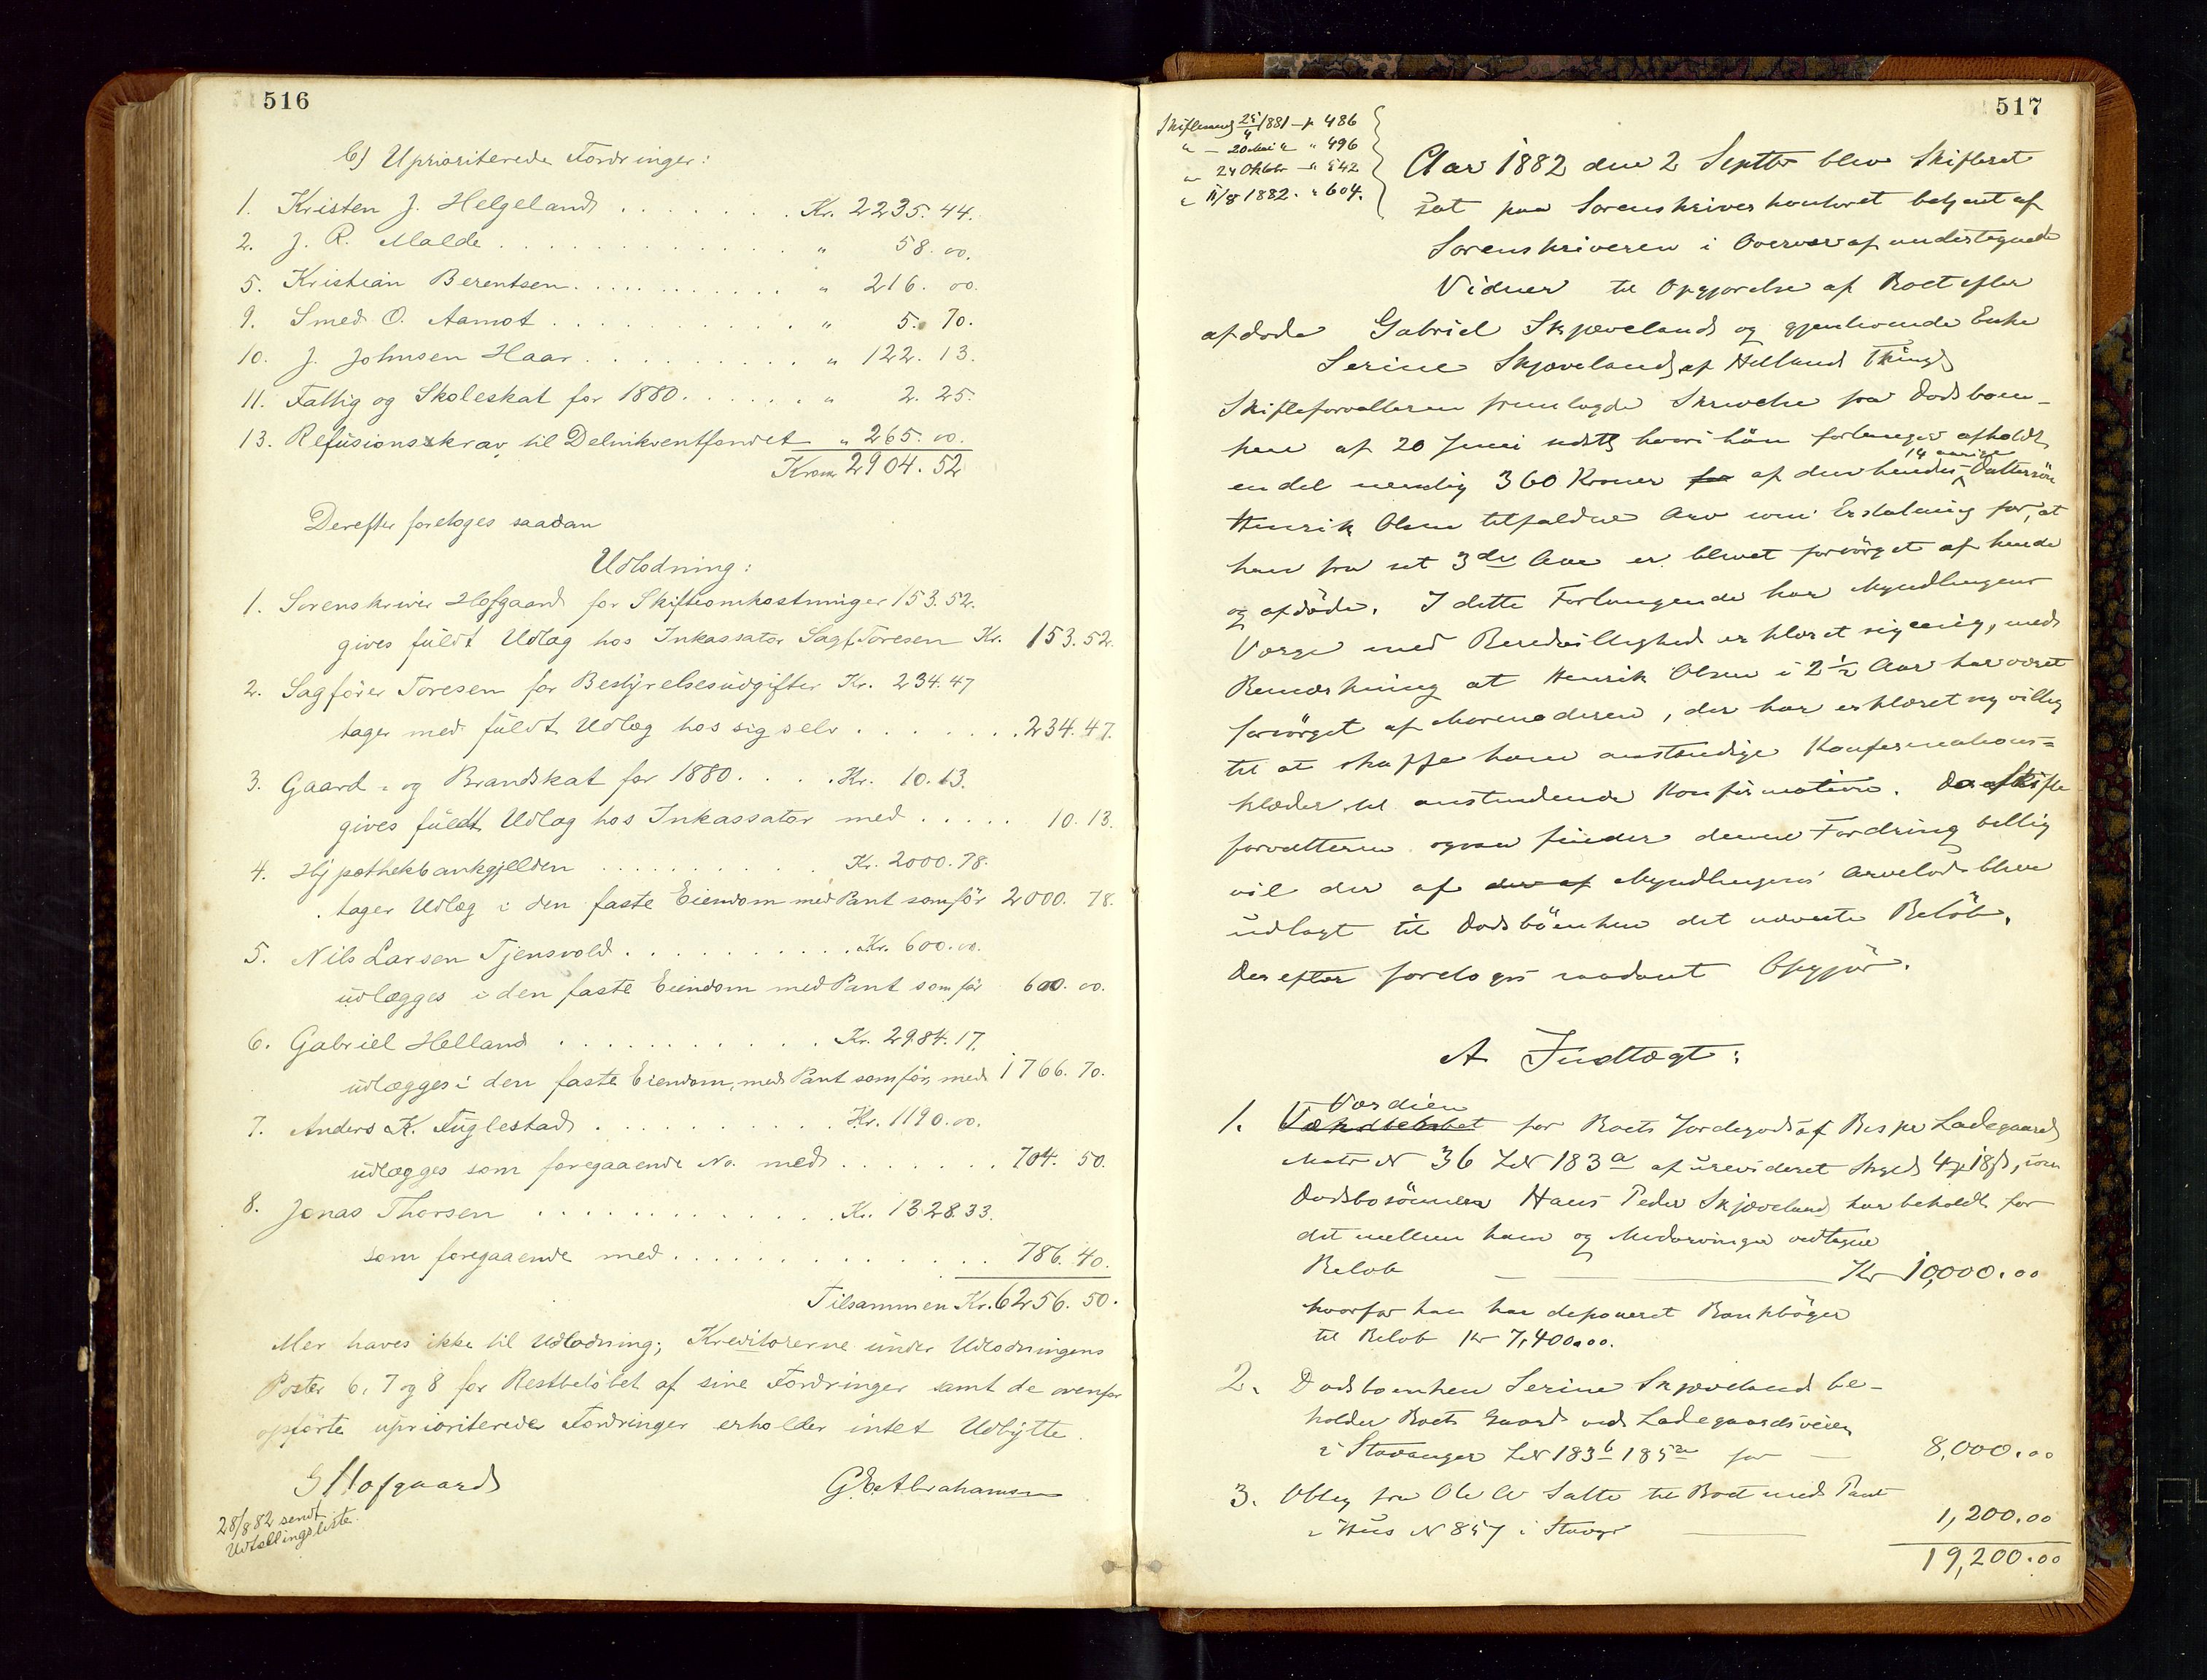 516
b) Uprioriterede Fordringer:
1. Kristen J. Helgeland . . . . . . . Kr. 2235. 44.
2. J. R. Malde . . . . . . . . . . . . " 58. 00.
5. Kristian Berentsen . . . . . . . . . . " 216. 00.
9. Smed O. Aamot . . . . . . . . . . " 5. 70.
10. J. Johnsen Haar . . . . . . . . . " 122. 13.
11. Fattig og Skoleskat for 1880 . . . . . . " 2. 25.
13. Refusionskrav til Delinkventfondet " 265. 00.
Kroner 2904. 52
Derefter foretoges saadan
Udlodning:
1. Sorenskriver Hofgaard for Skifteomkostninger 153.52.
gives fuldt Udlæg hos Inkassator Sagf. Toresen Kr. 153.52.
2. Sagfører Toresen for Bestyrelsesudgifter Kr. 234.47
tager med fuldt Udlæg hos sig selv . . . . . . . 234.47.
3. Gaard- og Brandskat for 1880 . . . . Kr. 10.13.
gives fuldt Udlæg hos Inkassator med . . . . . 10.13.
4. Hypothekbankgjelden . . . . . . . . . . Kr. 2000.78.
tager Udlæg i den faste Eiendom med Pant som før 2000. 78.
5. Nils Larsen Tjensvold . . . . . . . . . . Kr. 600.00.
udlægges i den faste Eiendom med Pant som før 600. 00.
6. Gabriel Helland . . . . . . . . . . . Kr. 2984.17.
udlægges i den faste Eiendom, med Pant som før, med 1766. 70.
7. Anders K. Fuglestad . . . . . . . . . . Kr. 1190.00.
udlægges som foregaaende No. med . . . . . . . 704. 50.
8. Jonas Thorsen . . . . . . . . . . . . Kr. 1328.33.
som foregaaende med . . . . . . . . . . . . . 786. 40.
Tilsammen Kr. 6256. 50.
Mer haves ikke til Udlodning; Kreditorerne under Udlodningens
Poster 6, 7 og 8 for Restbeløbet af sine Fordringer samt de ovenfor
opførte uprioriterede Fordringer erholder intet Udbytte.
G Hofgaard
G. E. Abrahamsen
28/8 82 sendt
Udtællingsliste.
517
Skiftesamg 25/4 1881 – p 486
" – 20 Mai " " 496
" 24 Oktbr – " 542
" 11/8 1882. " 604.
Aar 1882 den 2 Septbr blev Skifteret
sat paa Sorenskriverkontoret betjent af
Sorenskriveren i Overvær af undertegnede
Vidner til Opgjørelse af Boet efter
afdøde Gabriel Skjæveland og gjenlevende Enke
Serine Skjæveland af Hetland Thingl
Skifteforvalteren fremlagde Skrivelse fra Dødsboen-
ken af 20 Juni sidstl hvori hun forlanger afholdt
en del nemlig 360 Kroner for af den hendes 14 aarige Dattersøn
Henrik Olsen tilfaldne Arv som Erstatning for, at
han fra sit 3de Aar er blevet forsørget af hende
og afdøde. I dette Forlangende har Myndlingens
Værge med Beredvillighed erklæret sig enig, med
Bemærkning at Henrik Olsen i 2½ Aar har været
forsørget af Mormoderen, der har erklæret sig villig
til at skaffe ham anstændige Konfirmations-
klæder til anstundende Konfirmation. Da Skifte
forvalteren ogsaa finder denne Fordring billig
vil der af der af Myndlingens Arvelod blive
udlagt til Dødsboenken det nævnte Beløb.
Derefter foretoges saadant Opgjør.
A Indtægt:
1. Værdien
for Boets Jordegods af
Matr N 36 LN 183a af urevideret Skyld 4 18, som
Dødsbosønnen Hans Peder Skjæveland har beholdt for
det mellem ham og Medarvinger vedtagne
Beløb Kr 10,000.00
hvorfor han har deponeret Bankbøger
til Beløb Kr 7,400.00.
2. Dødsboenken Serine Skjæveland be-
holder Boets Gaard ved Ladegaardsveien
i Stavanger LN 183b 185a for 8,000.00
3. Oblig fra Ole Salte til Boet med Pant
i Hus N 857 i Stavgr 1,200.00
19,200.00